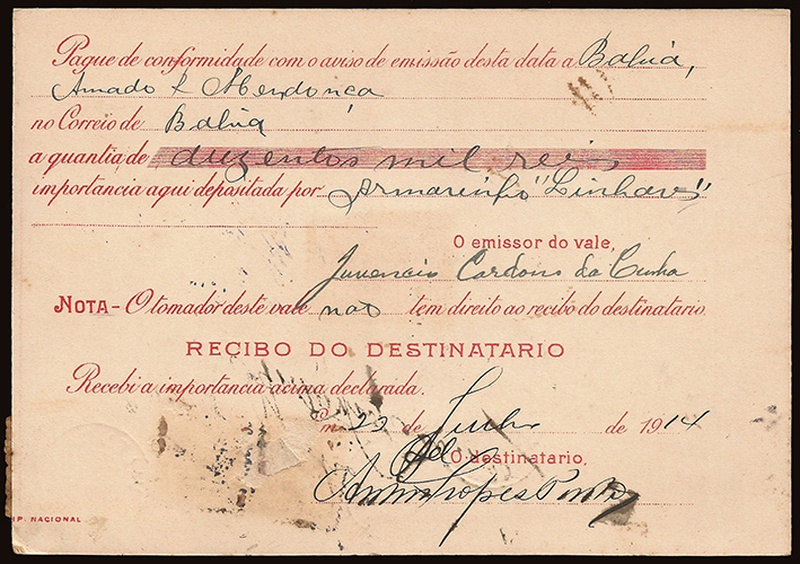 Pague de conformidade com o aviso de emissão desta data a Bahia,
Amado & Mendonça
no Correio de Bahia
a quantia de duzentos mil reis
importancia aqui depositada por Armarinho "Linhares"
O emissor do vale,
Juvencio Cardoso da Cunha
NOTA - O tomador deste vale não tem direito ao recibo do destinatario.
RECIBO DO DESTINATARIO
Recebi a importancia acima declarada.
Em 22 de Junho de 1914
O destinatario,
Lopes
IP. NACIONAL